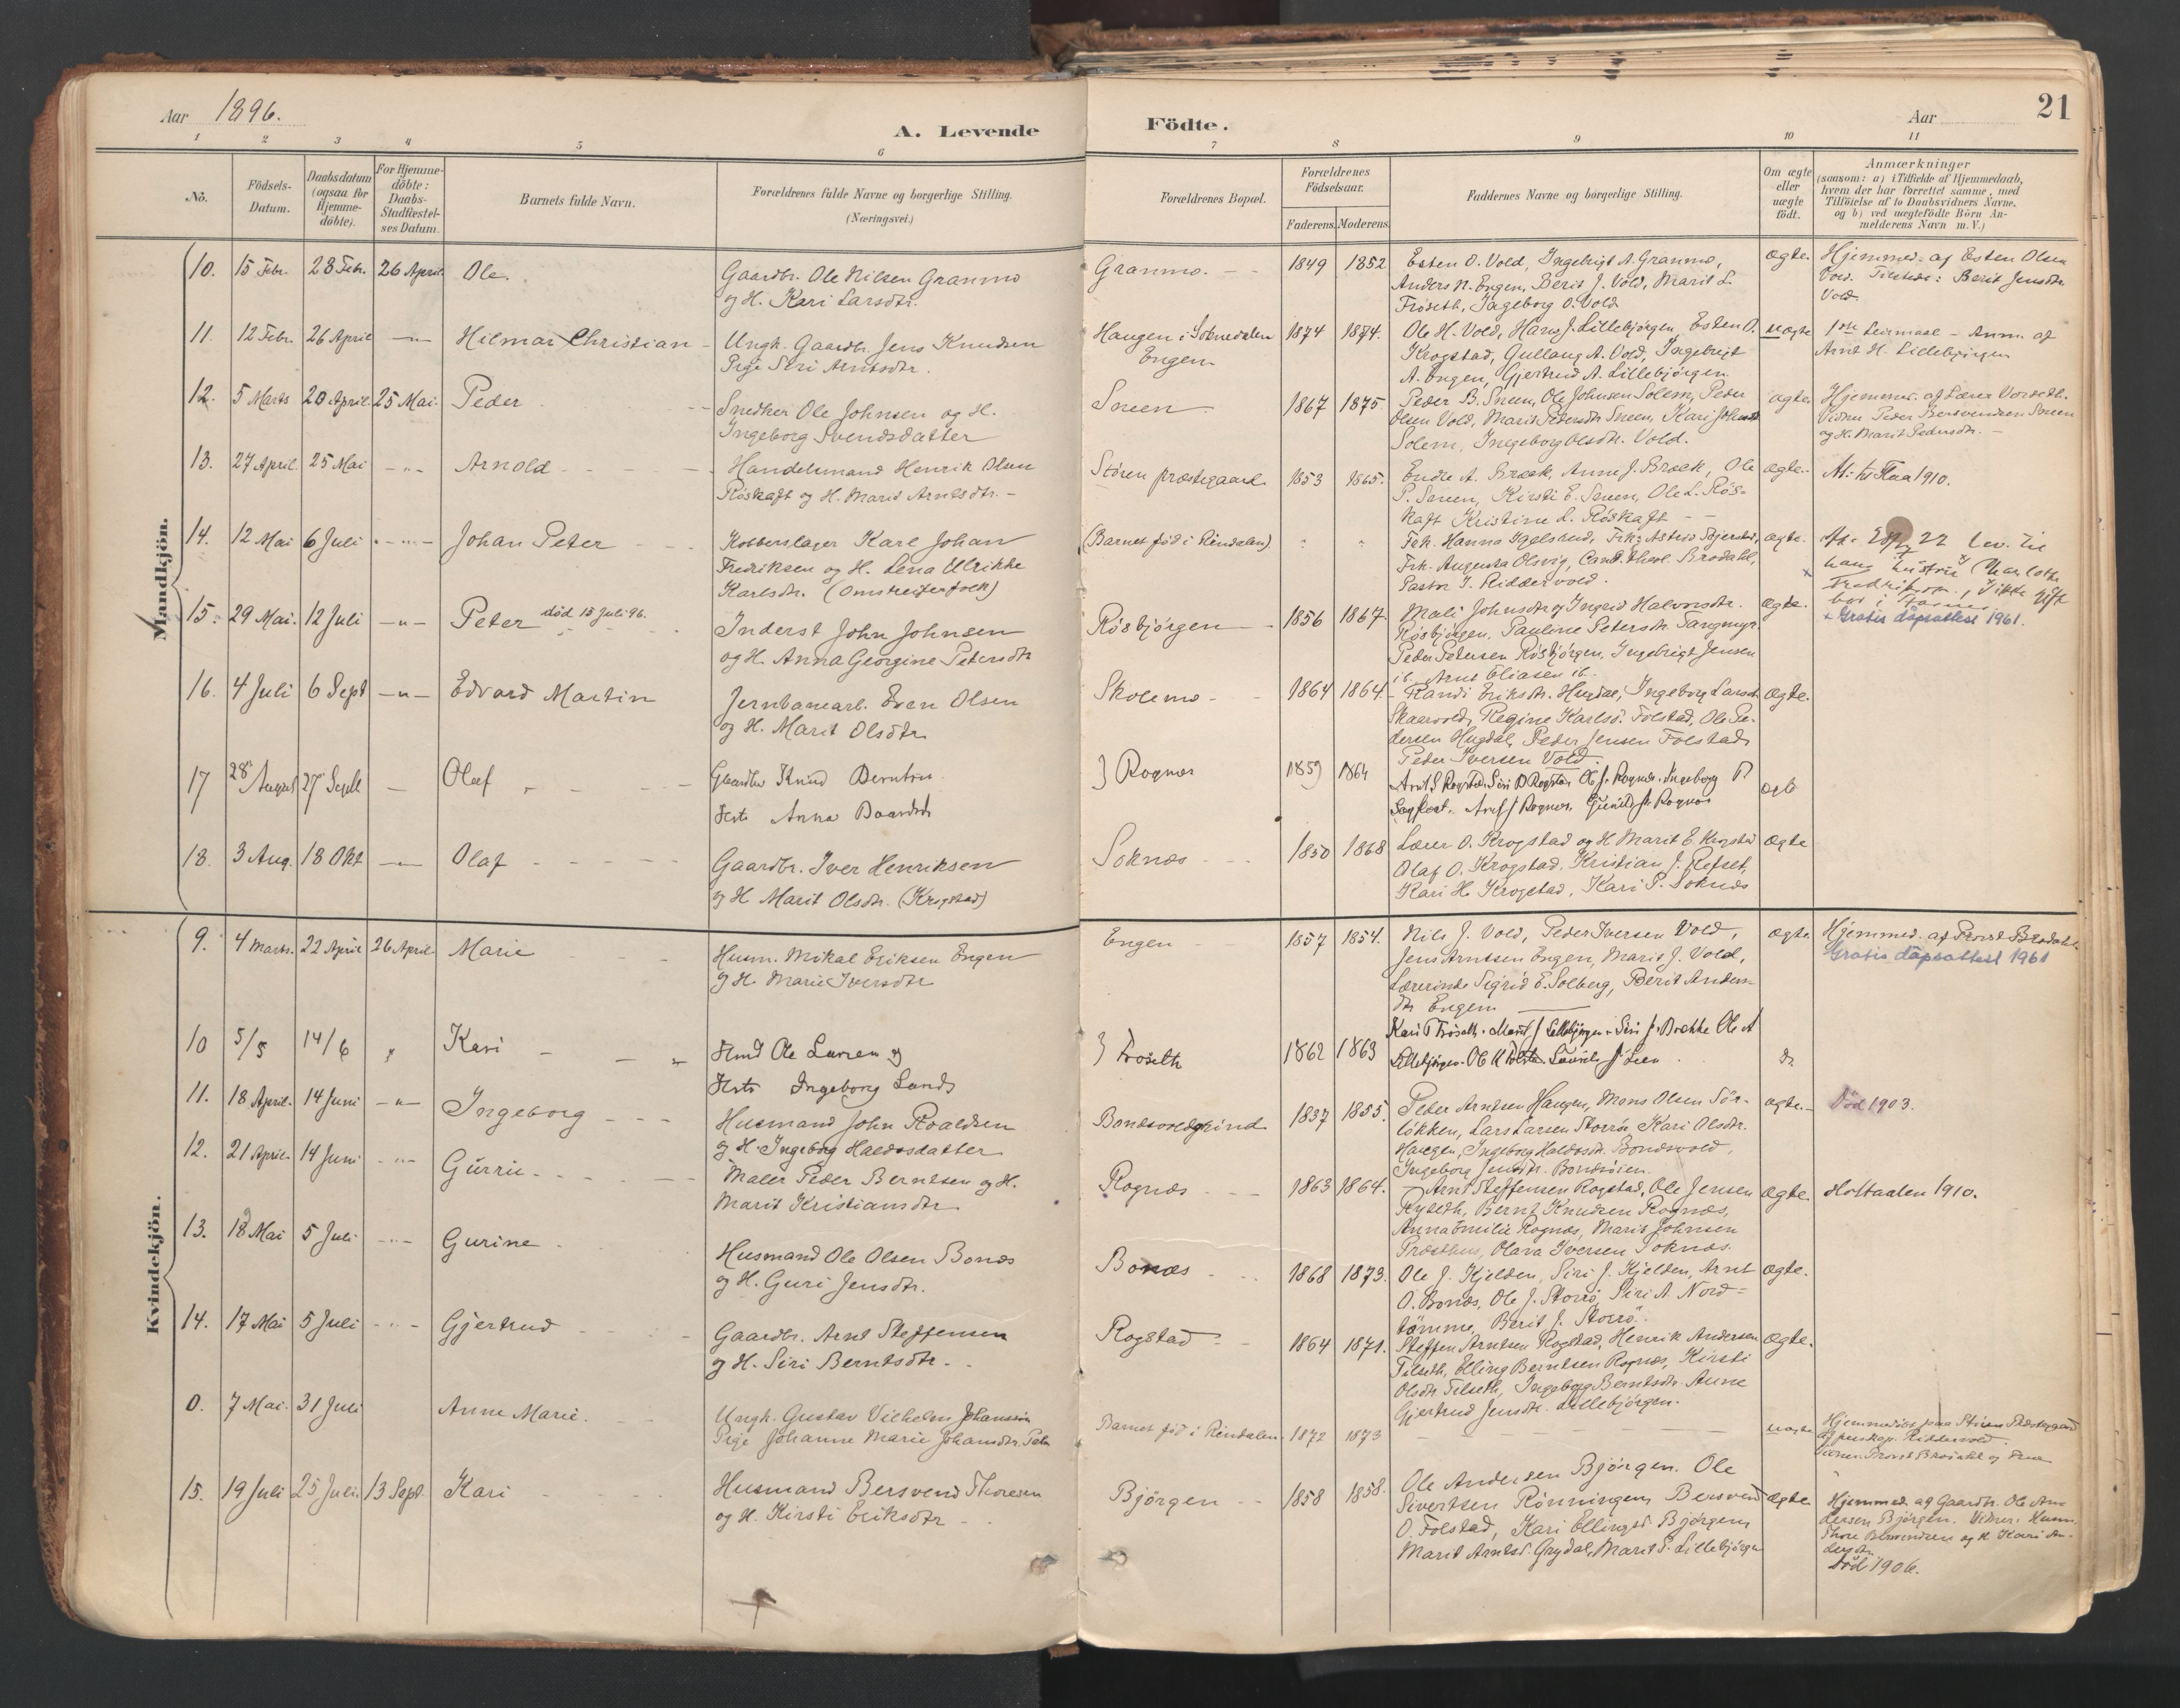 Aar 1896.
A. Levende Födte.
Aar
21
1 2 3 4 5 6 7 8 9 10 11
No.
Födsels-
Datum.
Daabsdatum
(ogsaa for
Hjemme-
döbte).
For Hjemme-
döbte:
Daabs-
Stadfæstel-
ses Datum.
Barnets fulde Navn.
Forældrenes fulde Navne og borgerlige Stilling.
(Næringsvei.)
Forældrenes Bopæl.
Forældrenes
Födselsaar.
Faderens. Moderens.
Faddernes Navne og borgerlige Stilling.
Om ægte
eller
uægte
födt.
Anmærkninger
(saasom: a) i Tilfælde af Hjemmedaab,
hvem der har forrettet samme, med
Tilföielse af to Daabsvidners Navne,
og b) ved uægtefödte Börn An-
melderens Navn m. V.)
Mandkjön.
10. 15 Febr. 28 Febr. 26 April Ole.
Gaardbr. Ole Nilsen Granmo
og H. Kari Larsdtr.
Granmo. 1849 1852
Esten O. Vold, Ingebrigt A. Granmo,
Anders N. Engen, Berit J. Vold, Marit L.
Fröseth, Ingeborg O. Vold
ægte.
Hjemmed. af Esten Olsen
Vold. Tilstede: Berit Jensdtr.
Vold.
11. 12 Febr. 26 April -"- Hilmar Christian
Ungk. Gaardbr. Jens Knudsen
Pige Siri Arntsdtr.
Haugen i Soknedalen
Engen
1874 1874.
Ole H. Vold, Hans J. Lillebjörgen, Esten O.
Krogstad, Gullaug A. Vold, Ingebrigt
A. Engen, Gjertrud A. Lillebjörgen.
uægte
1ste Leirmaal - Anm. af
Arnt H. Lillebjörgen
12. 5 Marts 20 April 25 Mai. Peder
Snedker Ole Johnsen og H.
Ingeborg Svendsdatter
Sneen 1867 1875.
Peder B. Sneen, Ole Johnsen Solem, Peder
Olsen Vold, Marit Pedersdtr Sneen, Kari Johnsdtr
Solem, Ingeborg Olsdtr. Vold.
ægte
Hjemmed. af Lærer Vorseth.
Vidner Peder Bersvendsen Sneen
og H. Marit Pedersdtr. -
13. 27 April 25 Mai -"- Arnold
Handelsmand Henrik Olsen
Röskaft og H. Marit Arntsdtr. -
Stören præstegaard 1853 1865.
Endre A. Bræk, Anne J. Bræk, Ole
P. Sneen, Kirsti E. Sneen, Ole L. Rös-
kaft Kristine L. Röskaft
ægte.
At. til Flaa 1910.
14. 12 Mai 6 Juli -"- Johan Peter
Kobberslager Karl Johan
Fredriksen og H. Lena Ulrikke
Karlsdtr. (Omstreiferfolk)
(Barnet föd i Rindalen) " "
Frk. Hanna Egelsrud, Frk. Astrid
Frk. Augusta Olsvig, Cand. theol. Brodahl,
Pastor J. Riddervold.
ægte.
22 lev. til
hans hustru Charlotte
Fredriksen, ikke gift
15. 29 Mai. 12 Juli -"- Peter död 13 Juli 96.
Inderst John Johnsen
og H. Anna Georgine Petersdtr
Rösbjörgen 1856 1867.
Mali Johnsdtr og Ingrid Halvorsdtr.
Rösbjörgen, Pauline Petersdtr Tangmyr.
Peder Petersen Rösbjörgen, Ingebrigt Jensen
ib. Arnt Eliasen ib.
ægte.
+ Gratis dåpsattest 1961.
16. 4 Juli 6 Sept -"- Edvard Martin
Jernbanearb. Even Olsen
og H. Marit Olsdtr.
Skolemo 1864 1864.
Randi Eriksdtr. Hugdal, Ingeborg Larsdtr
Skaarvold, Regine Karlsd. Folstad, Ole Pe-
dersen Hugdal, Peder Jensen Folstad,
Peder Iversen Vold.
ægte.
17 28 August 27 Septb - Olaf
Gaardbr Knud Berntsen
Hstr Anna Baardsdtr
Rognes 1859 1864
Arnt S Rogstad, Siri B Rogstad Ole J. Rognes. Ingeborg P
Arnt J Rognes, Gunild J. Rognes
ægte
18. 3 Aug. 18 Okt -"- Olaf
Gaardbr. Iver Henriksen
og H Marit Olsdtr. (Krogstad)
Soknæs 1850 1868
Lærer O. Krogstad og H Marit E. Krogstad
Olaf O. Krogstad. Kristian J. Refset,
Kari H. Krogstad, Kari P. Soknæs
ægte
Kvindekjön.
9. 4 Marts. 22 April 26 April Marie
Husm. Mikal Eriksen Engen
og H. Marie Iversdtr
Engen 1857 1854.
Nils J. Vold, Peder Iversen Vold,
Jens Arntsen Engen, Marit J. Vold,
Lærerinde Sigrid E. Solberg, Berit Anders-
dtr Engen
ægte
Hjemmed. af Provst Brodahl.
Gratis dåpsattest 1961
10 5/5 14/6 " Kari
Hmd Ole Larsen og
Hstr Ingeborg Larsd
Fröseth 1862 1863
Kari T Fröseth. Marit J Lillebjörgen. Siri J. Brække Ole A
Lillebjörgen. Ole
do.
11. 18 April 14 Juni -"- Ingeborg
Husmand John Roaldsen
og H. Ingeborg Haldosdatter
Bondsvoldgrind 1837 1855.
Peder Arntsen Haugen, Mons Olsen Sör-
lökken, Lars Larsen Storrö Kari Olsdtr.
Haugen, Ingeborg Haldosdtr. Bondsvold,
Ingeborg Jensdtr. Bondröien.
ægte.
Död 1903.
12. 21 April 14 Juni -"- Gurrie
Maler Peder Berntsen og H.
Marit Kristiansdtr.
Rognæs 1863 1864.
Arnt Steffensen Rogstad, Ole Jensen
Bernt Knudsen Rognæs,
Anna Emilie Rognæs, Marit Johnsen
Præsthus, Olava Iversen Soknæs.
ægte
Holtaalen 1910.
13. 18 Mai 5 Juli -"- Gurine
Husmand Ole Olsen Bonæs
og H. Guri Jensdtr.
Bonæs 1868 1873.
Ole J. Kjelden, Siri J. Kjelden, Arnt
O. Bonæs, Ole J. Storrö Siri A. Nord-
tömme, Berit J. Storrö.
ægte.
14. 17 Mai 5 Juli -"- Gjertrud
Gaardbr. Arnt Steffensen
og H. Siri Berntsdtr.
Rogstad 1864 1871.
Steffen Arntsen Rogstad, Henrik Andersen
Tilseth, Elling Berntsen Rognæs, Kirsti
Olsdtr. Tilseth, Ingeborg Berntsdtr. Anne
Gjertrud Jensdtr. Lillebjörgen.
ægte.
0. 7 Mai. 31 Juli Anne Marie.
Ungk. Gustav Vilhelm Johanson
Pige Johanne Marie Johansdtr.
Barnet föd i Rindalen 1872 1873
uægte
Hjemmedöbt paa Stören Præstegaard
af perskap. Riddervold.
Vidner: Provst Brodahl og Frue
15. 19 Juli 25 Juli 13 Sept. Kari
Husmand Bersvend Thoresen
og H. Kirsti Eriksdtr
Björgen 1858 1858.
Ole Andersen Bjørgen. Ole
Sivertsen Rönningen, Bersvend
O. Folstad, Kari Ellingsd. Bjørgen,
Marit Arntsd. Grydal, Marit P. Lillebjörgen
ægte
Hjemmed. af Gaardbr. Ole An-
dersen Bjørgen. Vidner: Husm.
Thore Bersvendsen og H. Kari An-
dersdtr.
Död 1906.